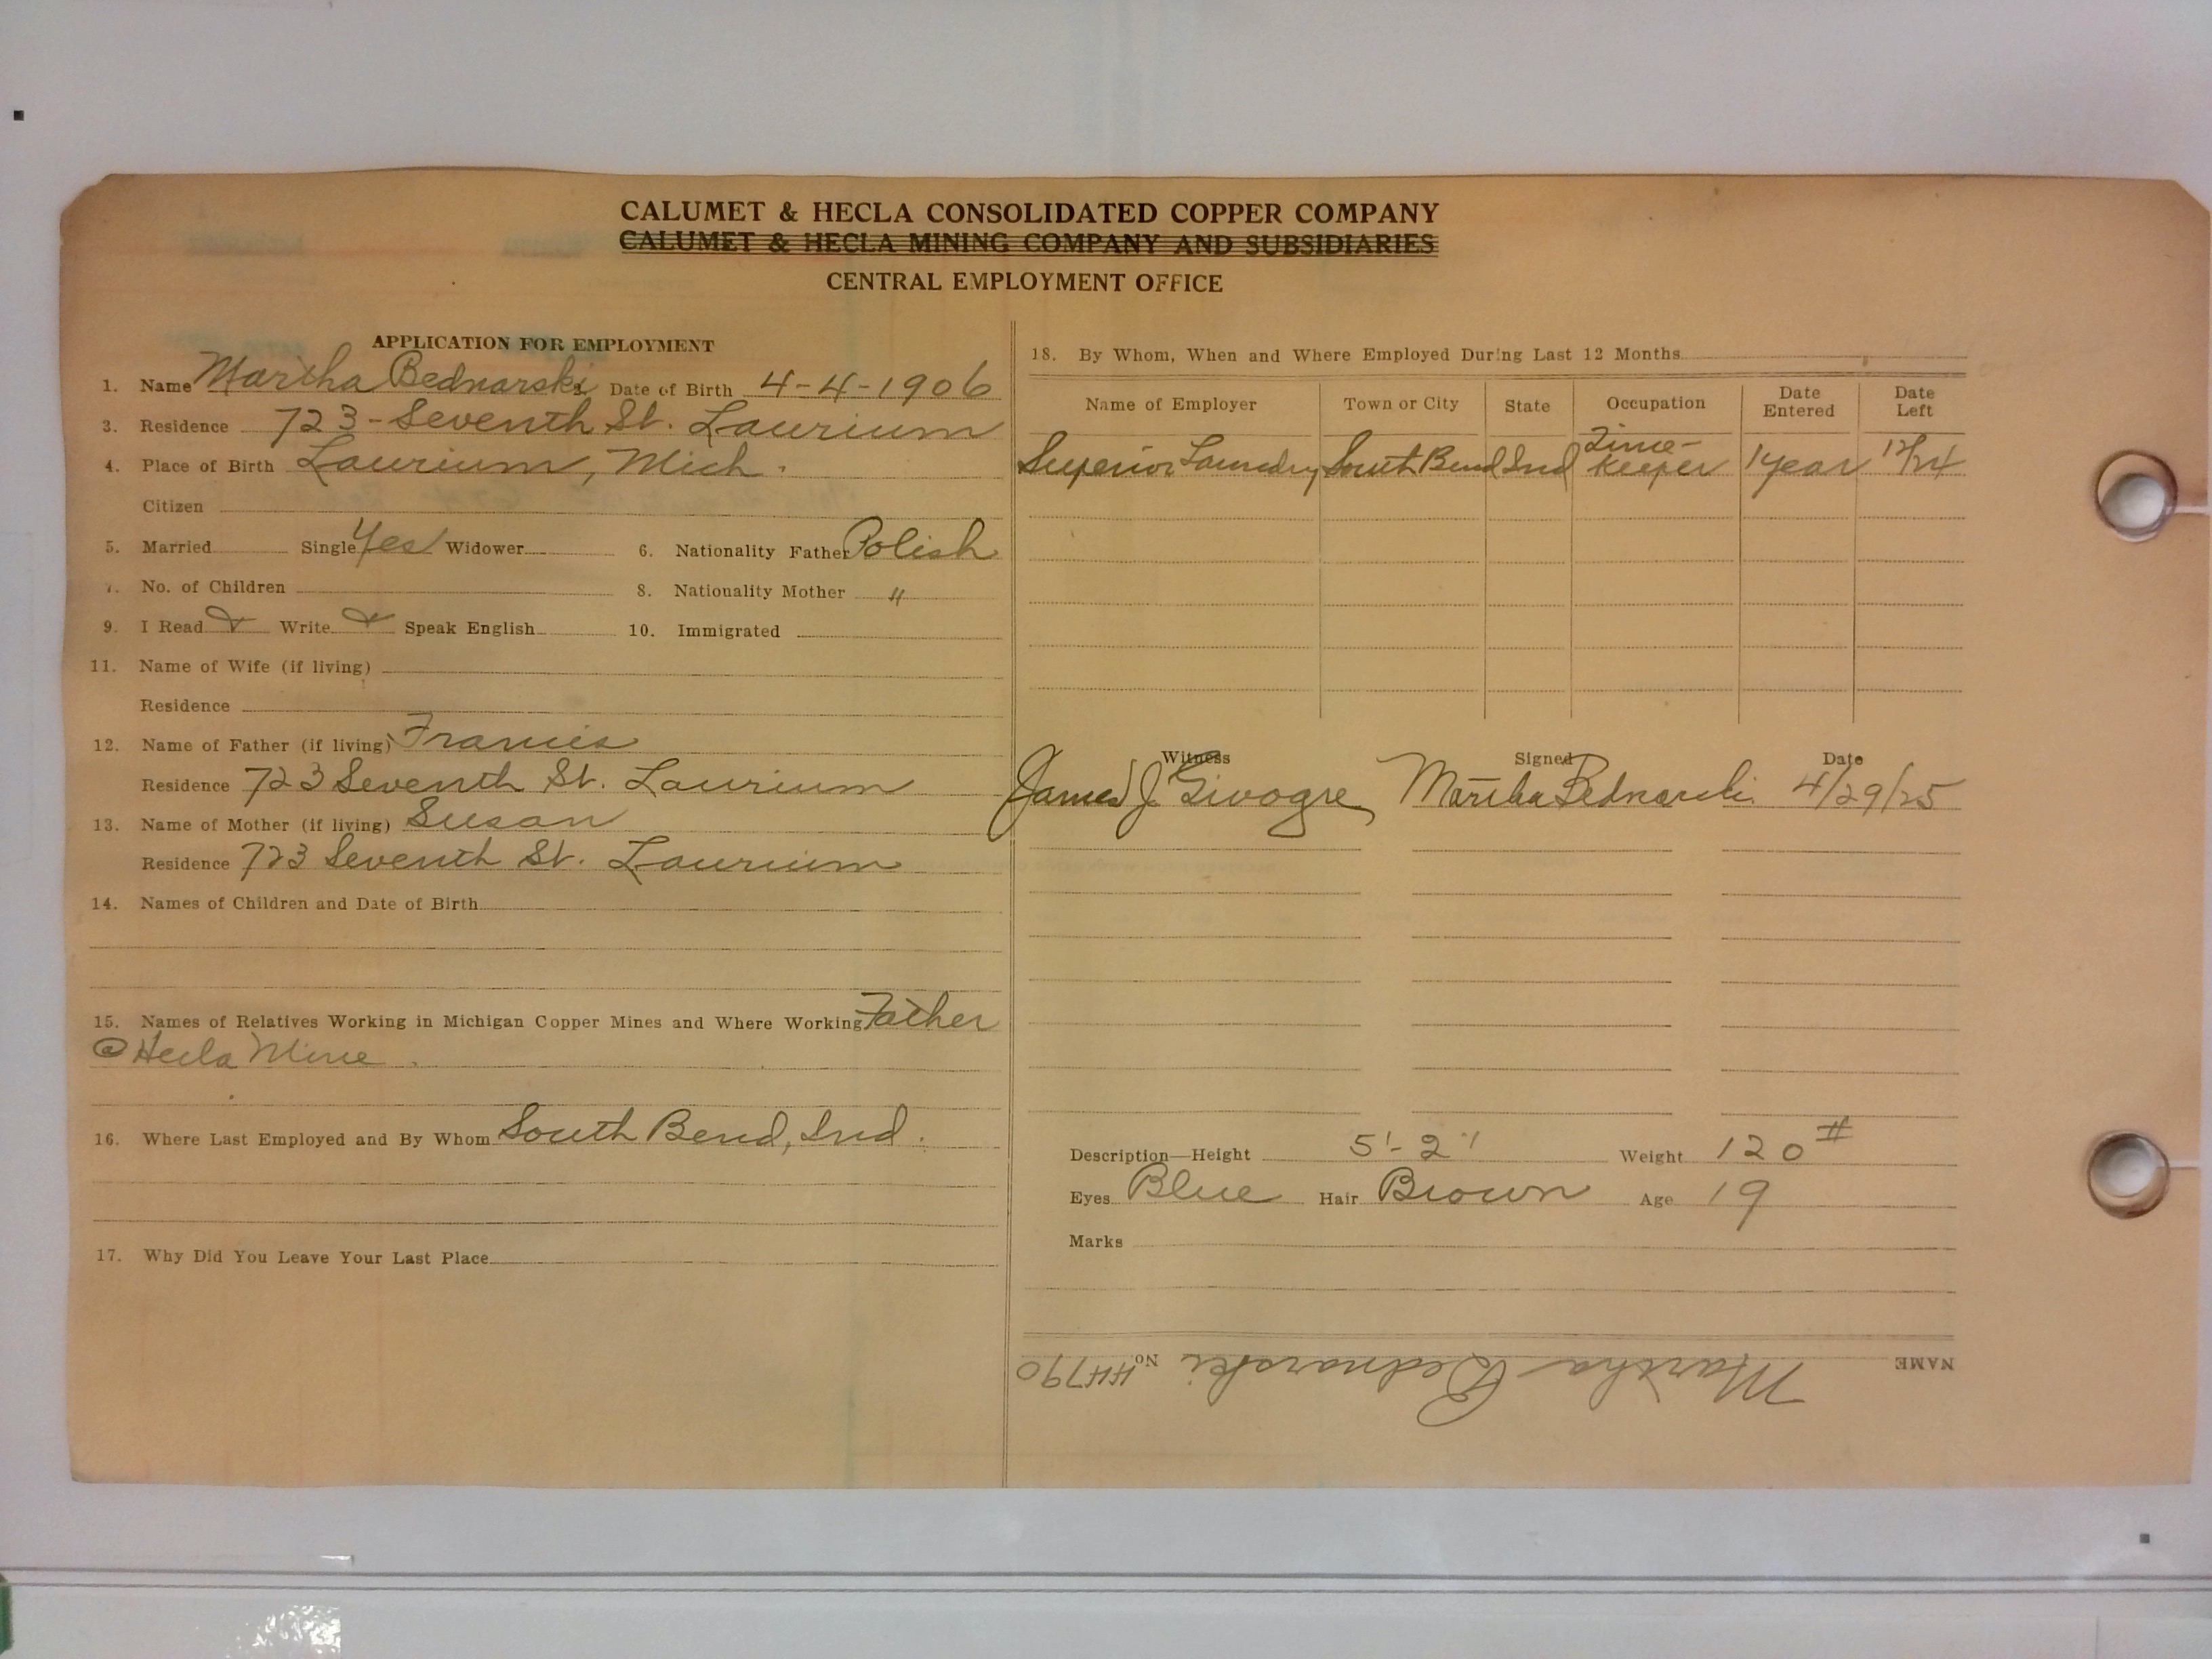 CALUMET & HECLA CONSOLIDATED COPPER COMPANY
CALUMET & HECLA MINING COMPANY AND SUBSIDIARIES
CENTRAL EMPLOYMENT OFFICE
APPLICATION FOR EMPLOYMENT
1. Name Martha Bednarski 2. Date of Birth 4-4-1906
3. Residence 723-Seventh St. Laurium
4. Place of Birth Laurium, Mich.
Citizen
5. Married Single Yes Widower 6. Nationality Father Polish
7. No. of Children 8. Nationality Mother "
9. I Read Write Speak English 10. Immigrated
11. Name of Wife (if living)
Residence
12. Name of Father (if living) Francis
Residence 723 Seventh St. Laurium
13. Name of Mother (if living) Susan
Residence 723 Seventh St. Laurium
14. Names of Children and Date of Birth
15. Names of Relatives Working in Michigan Copper Mines and Where Working Father
@ Hecla Mine
16. Where Last Employed and By Whom South Bend, Ind.
17. Why Did You Leave Your Last Place
18. By Whom, When and Where Employed During Last 12 Months
Name of Employer Town or City State Occupation Date Entered Date Left
Superior Laundry South Bend Ind Time-keeper 1 year 12/24
Witness Signed Date
James J. Martha Bednarski 4/29/25
Description—Height 5'-2" Weight 120#
Eyes Blue Hair Brown Age 19
Marks
NAME Martha Bednarski No. 44790